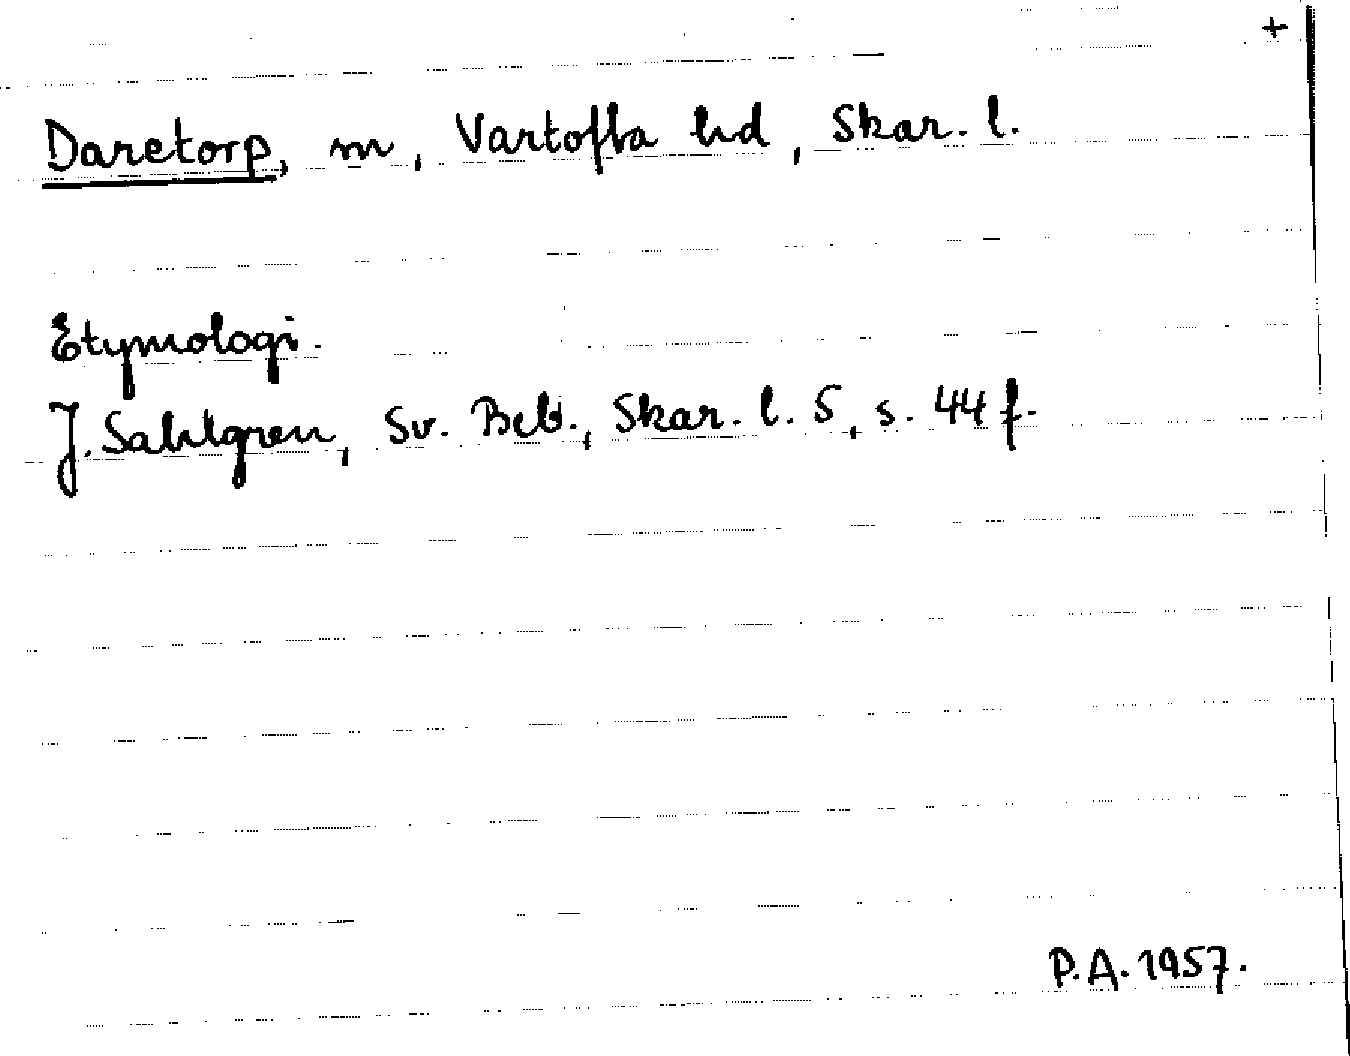 +
Daretorp, sn, Vartofta hd, Skar. l.
Etymologi.
J. Sahlgren, Sv. Beb., Skar. l. 5, s. 44 f.
P.A. 1957.